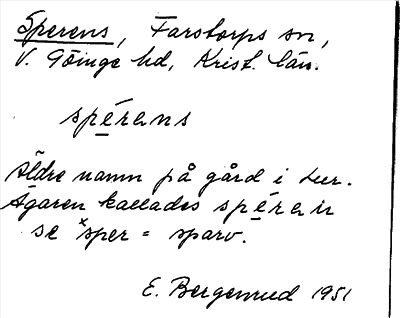 Sperens, Farstorps sn,
V. Göinge hd, Krist. län.
spérens
Äldre namn på gård i
Ägaren kallades spéren
se *sper = sparv.
E. Bergenrud 1951